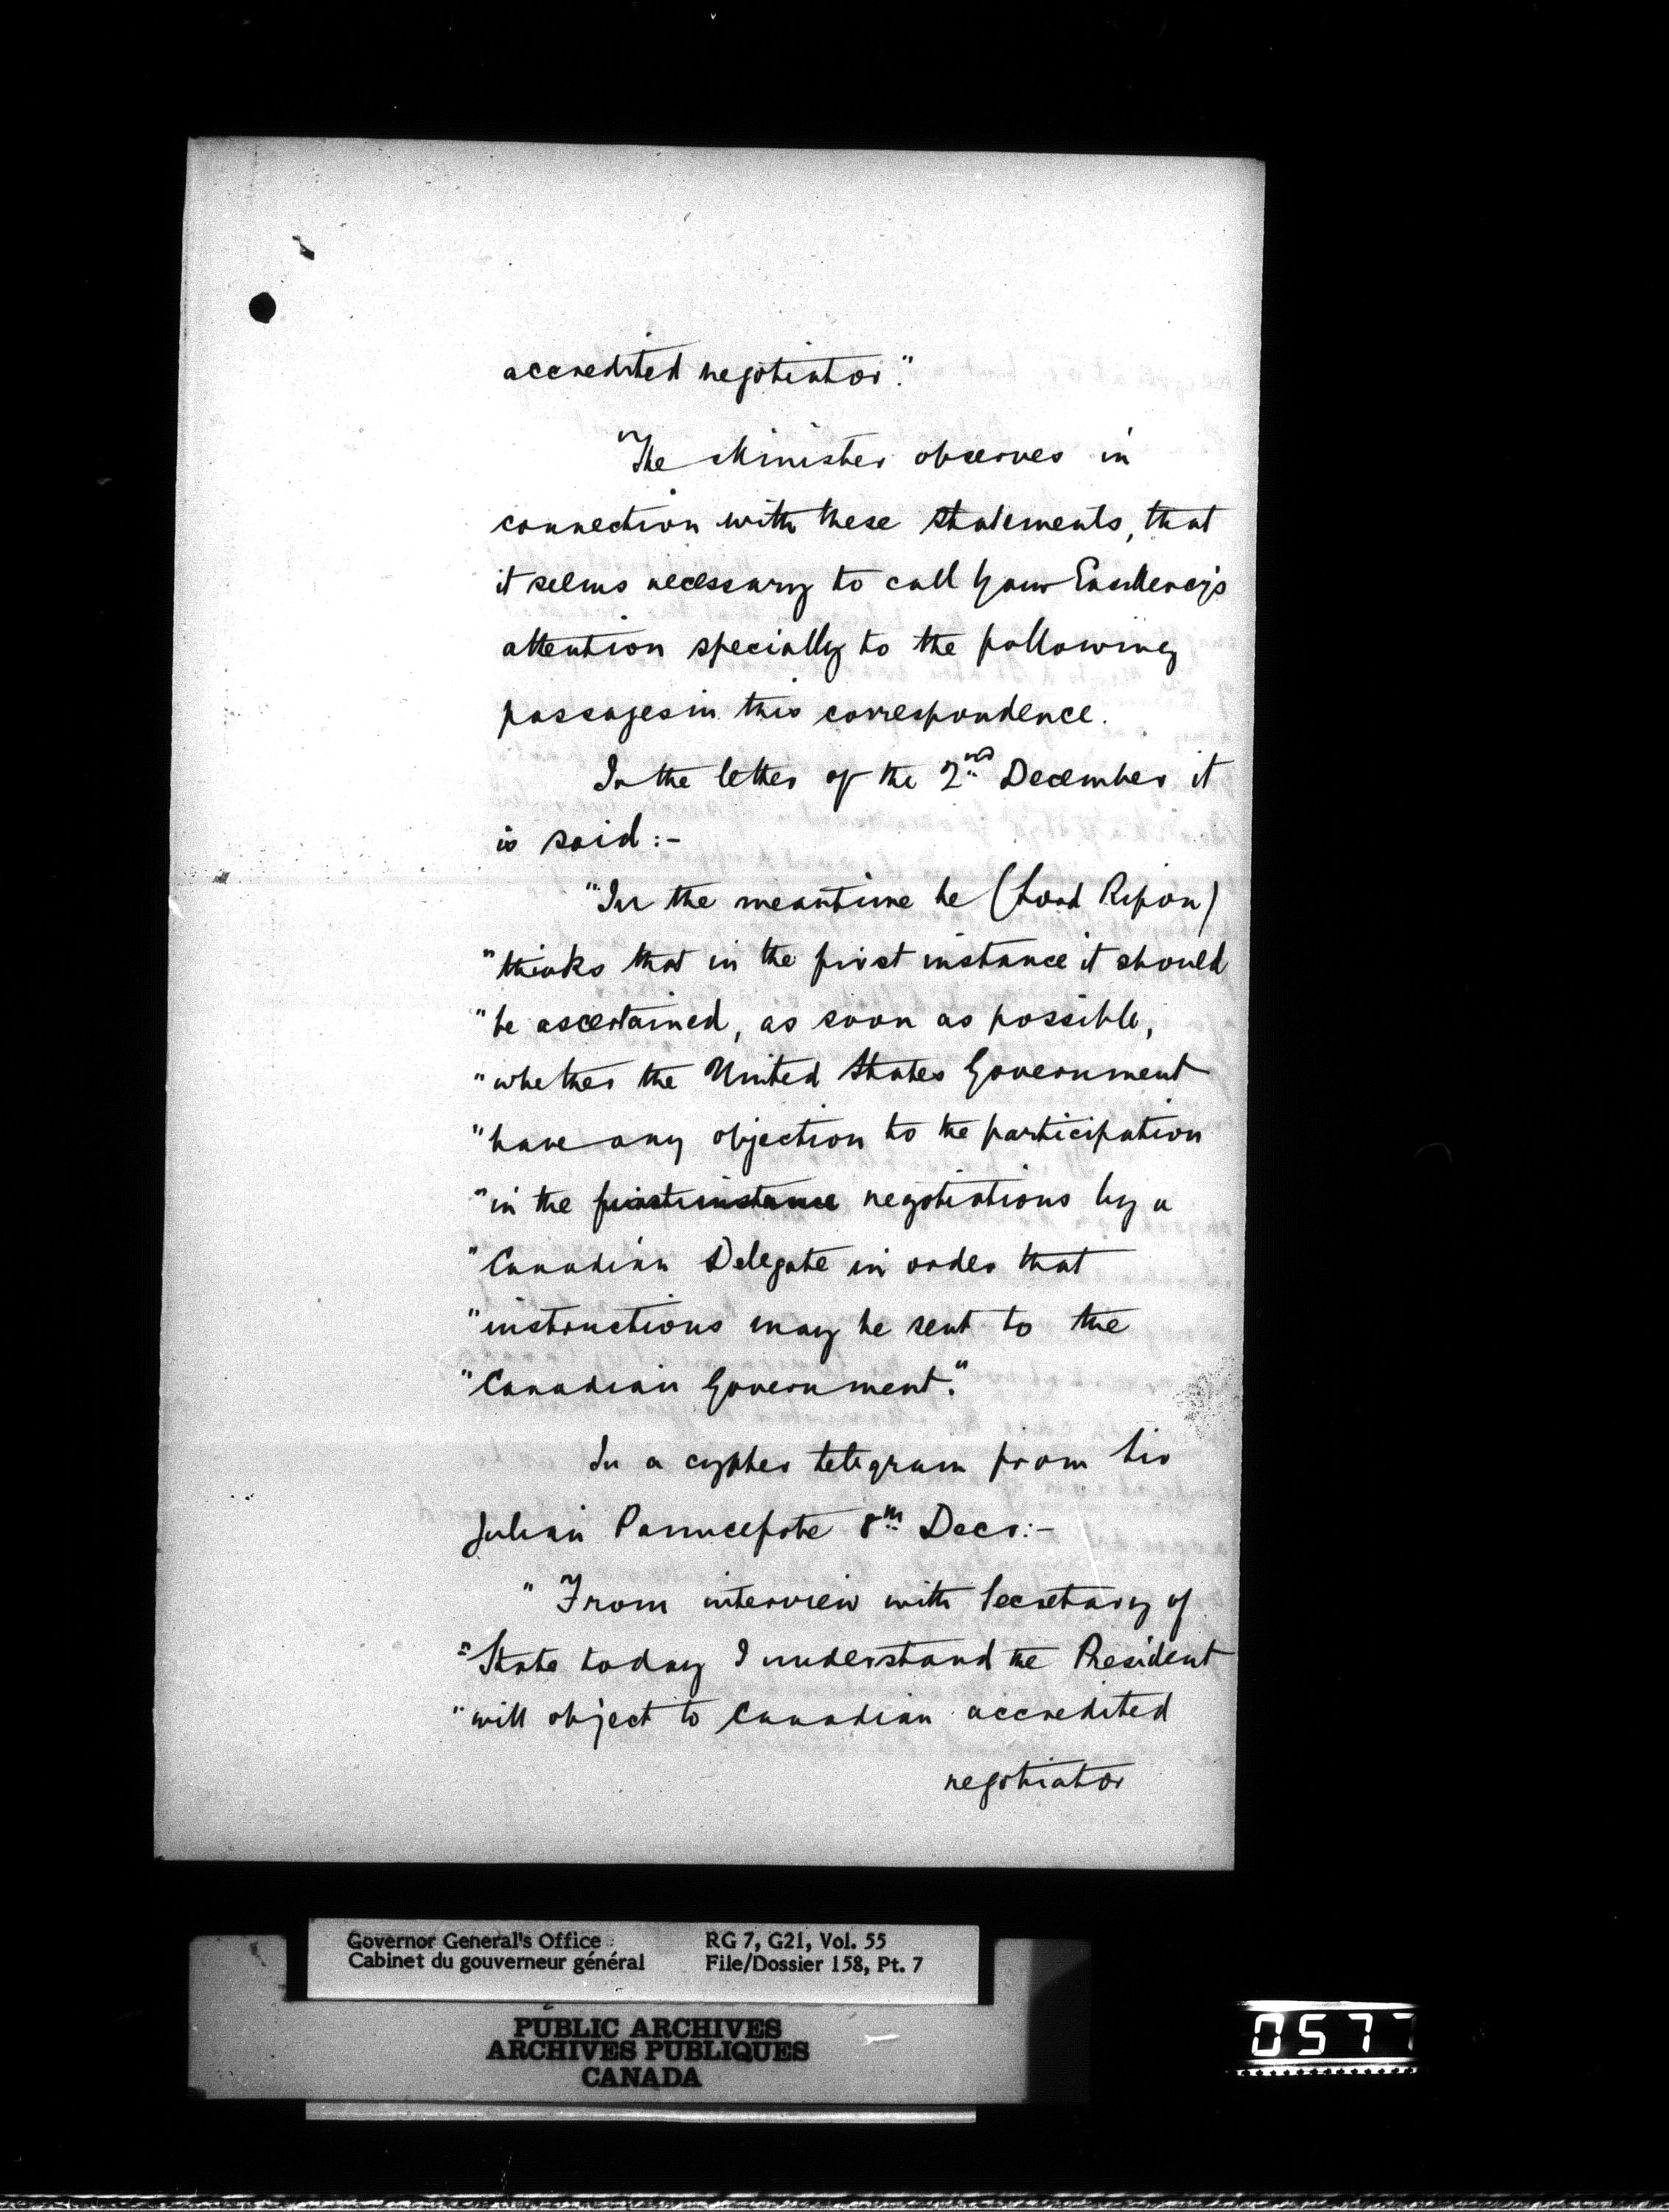 accredited negotiator."
"The Minister observes in
connection with these statements, that
it seems necessary to call Your Excellency's
attention specially to the following
passages in this correspondence.
In the letter of the 2nd December it
is said:-
"In the meantime he (Lord Ripon)
"thinks that in the first instance it should
"be ascertained, as soon as possible,
"whether the United States Government
"have any objection to the participation
"in the first instance negotiations by a
"Canadian Delegate in order that
"instructions may be sent to the
"Canadian Government."
In a cypher telegram from Sir
Julian Pauncefote 8th Decr:-
"From interview with Secretary of
"State today I understand the President
"will object to Canadian accredited
negotiator
Governor General's Office RG 7, G21, Vol. 55
Cabinet du gouverneur général File/Dossier 158, Pt. 7
PUBLIC ARCHIVES
ARCHIVES PUBLIQUES
CANADA
0577